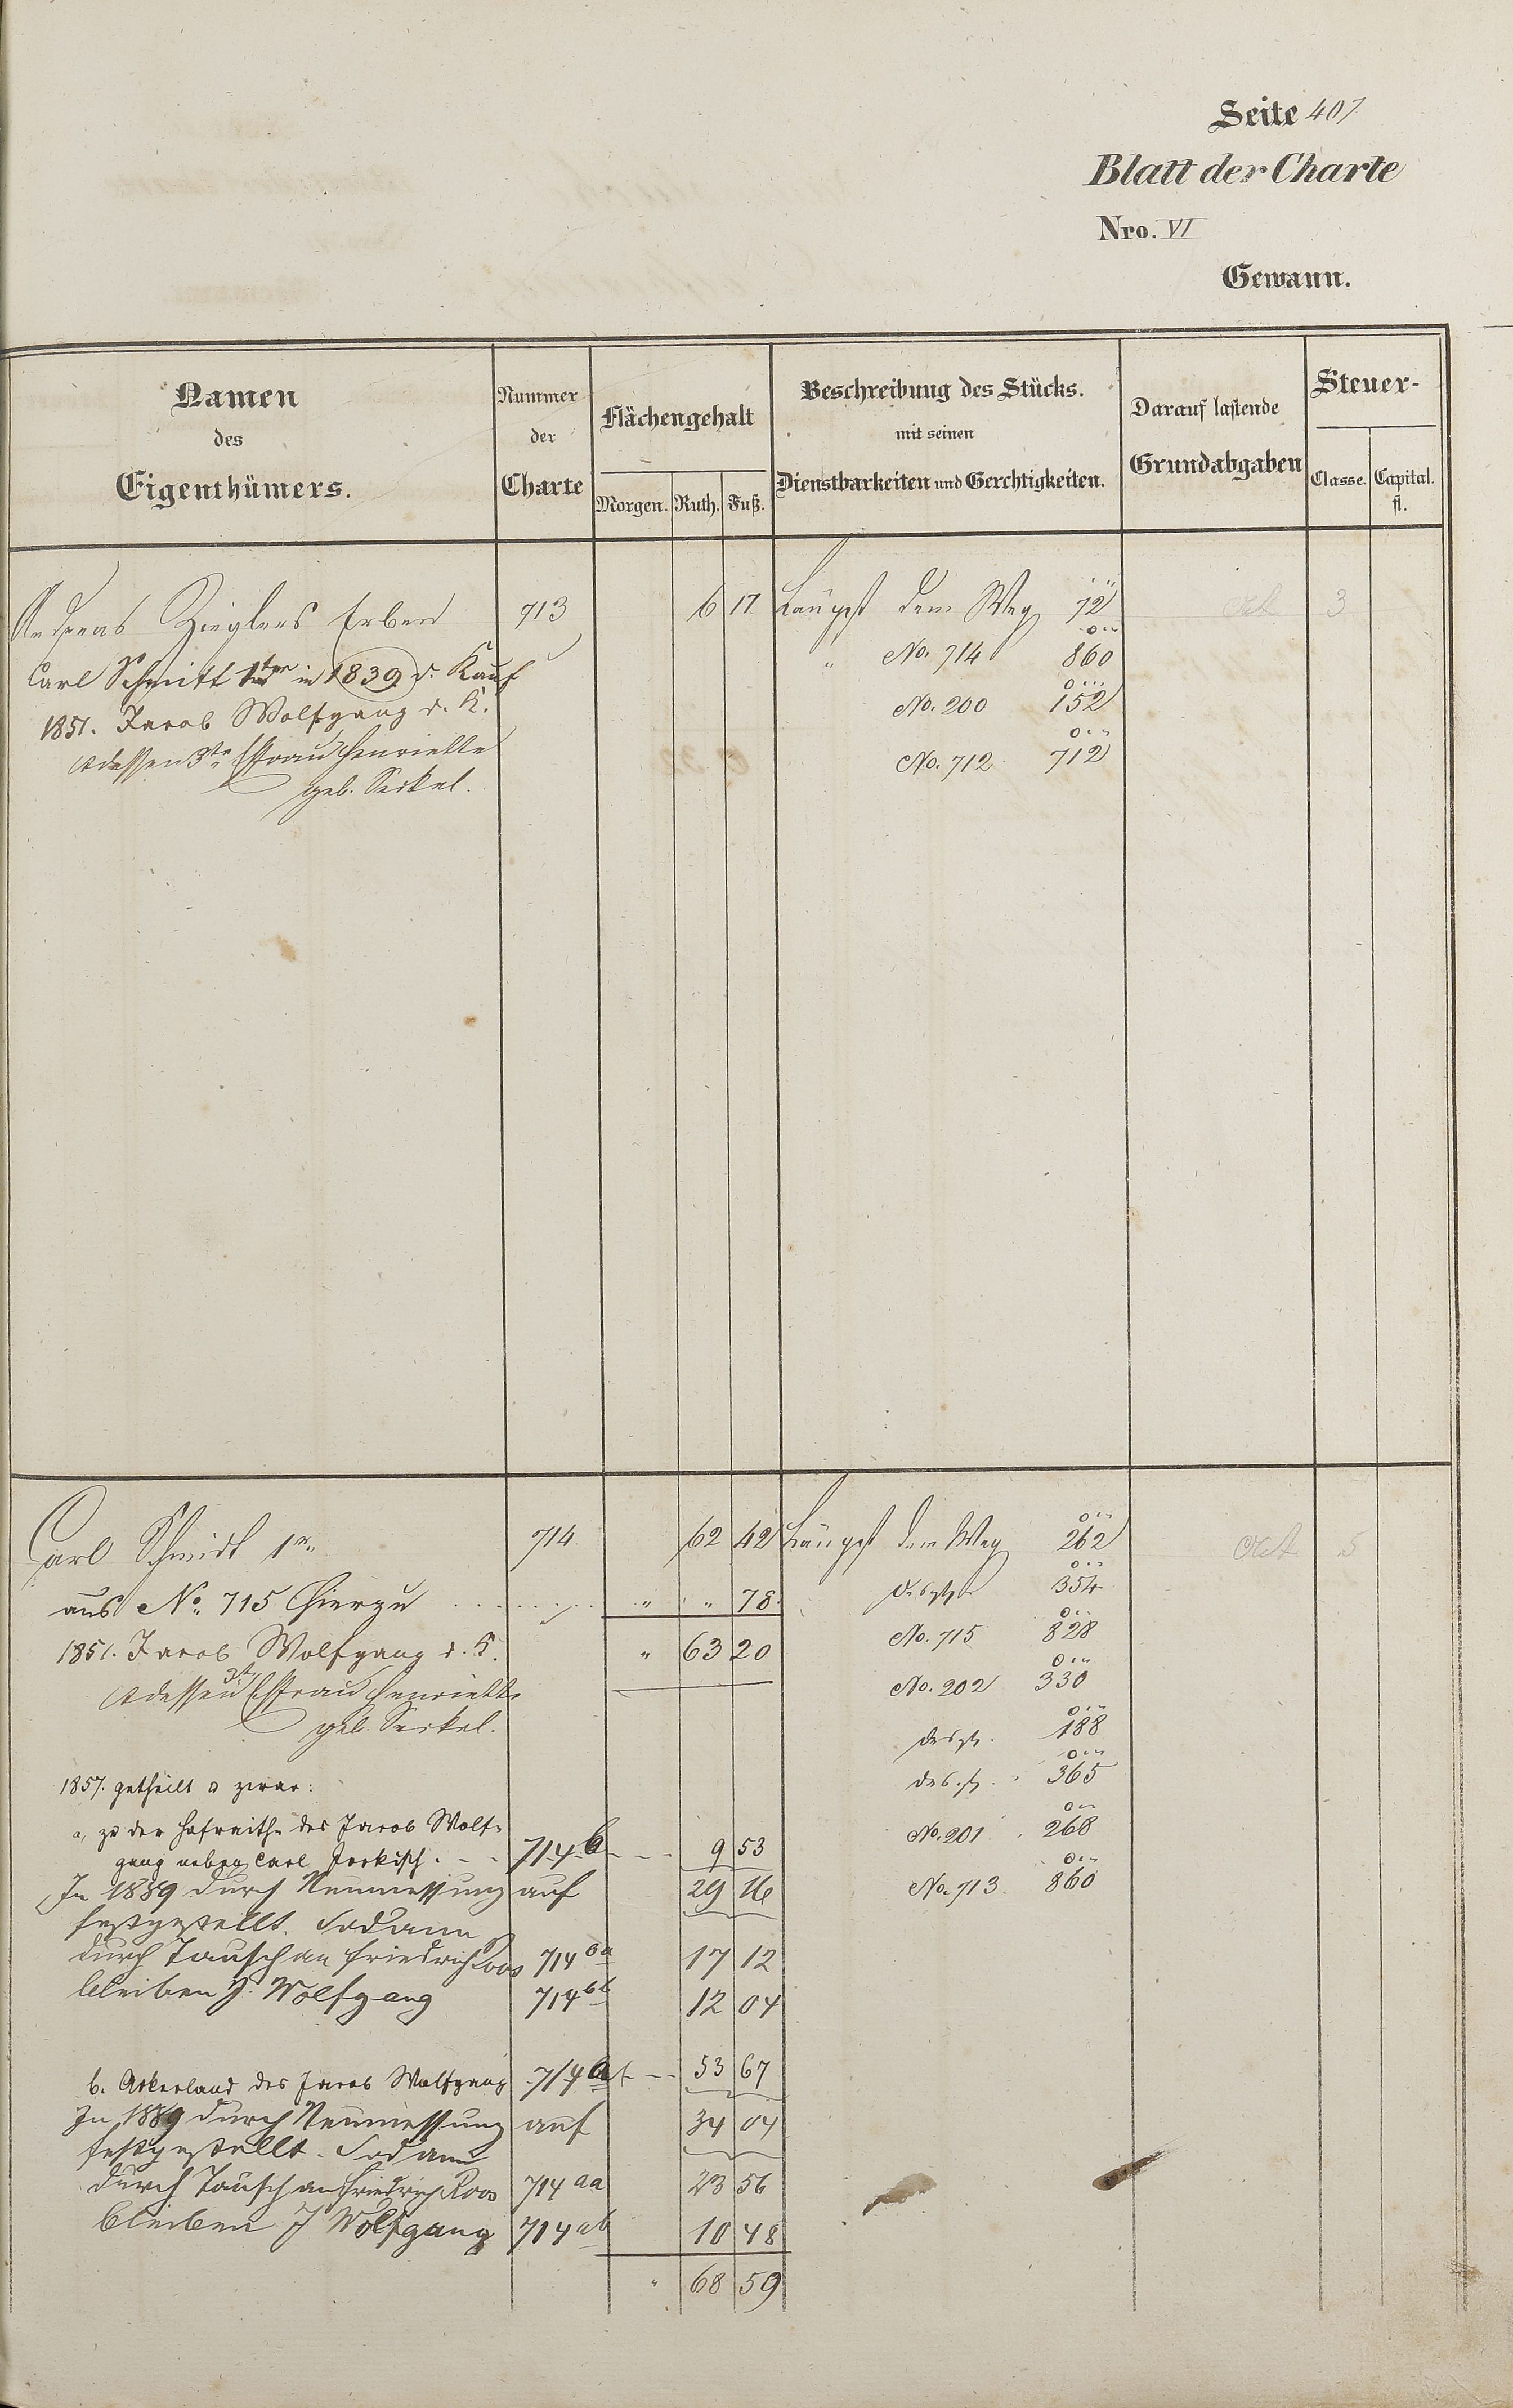 Seite 407
Blatt der Charte
Nro. VI
Gewann.
Namen
des
Eigenthümers.
Nummer
der
Charte
Flächengehalt
Morgen. Ruth. Fuß.
Beschreibung des Stücks.
mit seinen
Dienstbarkeiten und Gerechtigkeiten.
Darauf lastende
Grundabgaben
Steuer-
Classe. Capital.
fl.
Andreas Zieglers Erben 713 6 17 Längst dem Weg 72 3
Carl Schmitt 1ter in 1839 d. Kauf " No. 714 860
1851. Jacob Wolfgang d. K. No. 200 152
dessen 3te Ehfrau Henriette No. 712 712
geb. Seckel.
Carl Schmidt 1r 714 62 42 Längst dem Weg 262 5
aus No. 715 hierzu " " 78 354
1851. Jacob Wolfgang d. K. " 63 20 No. 715 828
dessen Ehfrau Henriette No. 202 330
geb. Seckel. desgl. 188
1857. getheilt u zwar: desgl. 365
a, zu der Hofraithe des Jacob Wolf- No. 201 268
gang neben Carl 714 b 9 53
In 1889 durch Neumessung auf 29 16 No. 713 860
festgestellt. Sodann
durch Tausch an Friedrich Roos 714 ba 17 12
bleiben J. Wolfgang 714 bb 12 04
b. Ackerland des Jacob Wolfgang 714 a 53 67
In 1889 durch Neumessung auf 34 04
festgestellt. Sodann
durch Tausch an Friedrich Roos 714 aa 23 56
bleiben J Wolfgang 714 ab 10 48
" 68 59